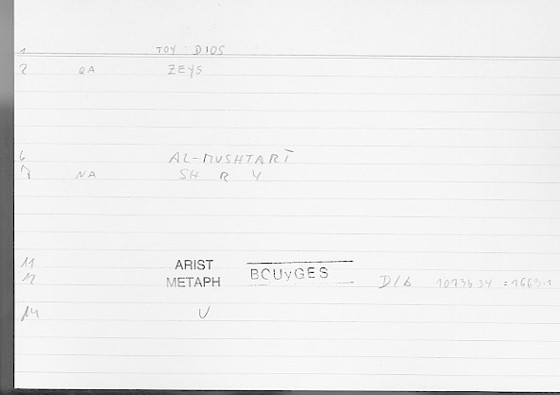 1 TOY DIOS
2 QA ZEYS
6 AL-MUSHTARĪ
7 NA SH R Y
11 ARIST BOUyGES
12 METAPH D/b 1073b34 :1669.1
14 U